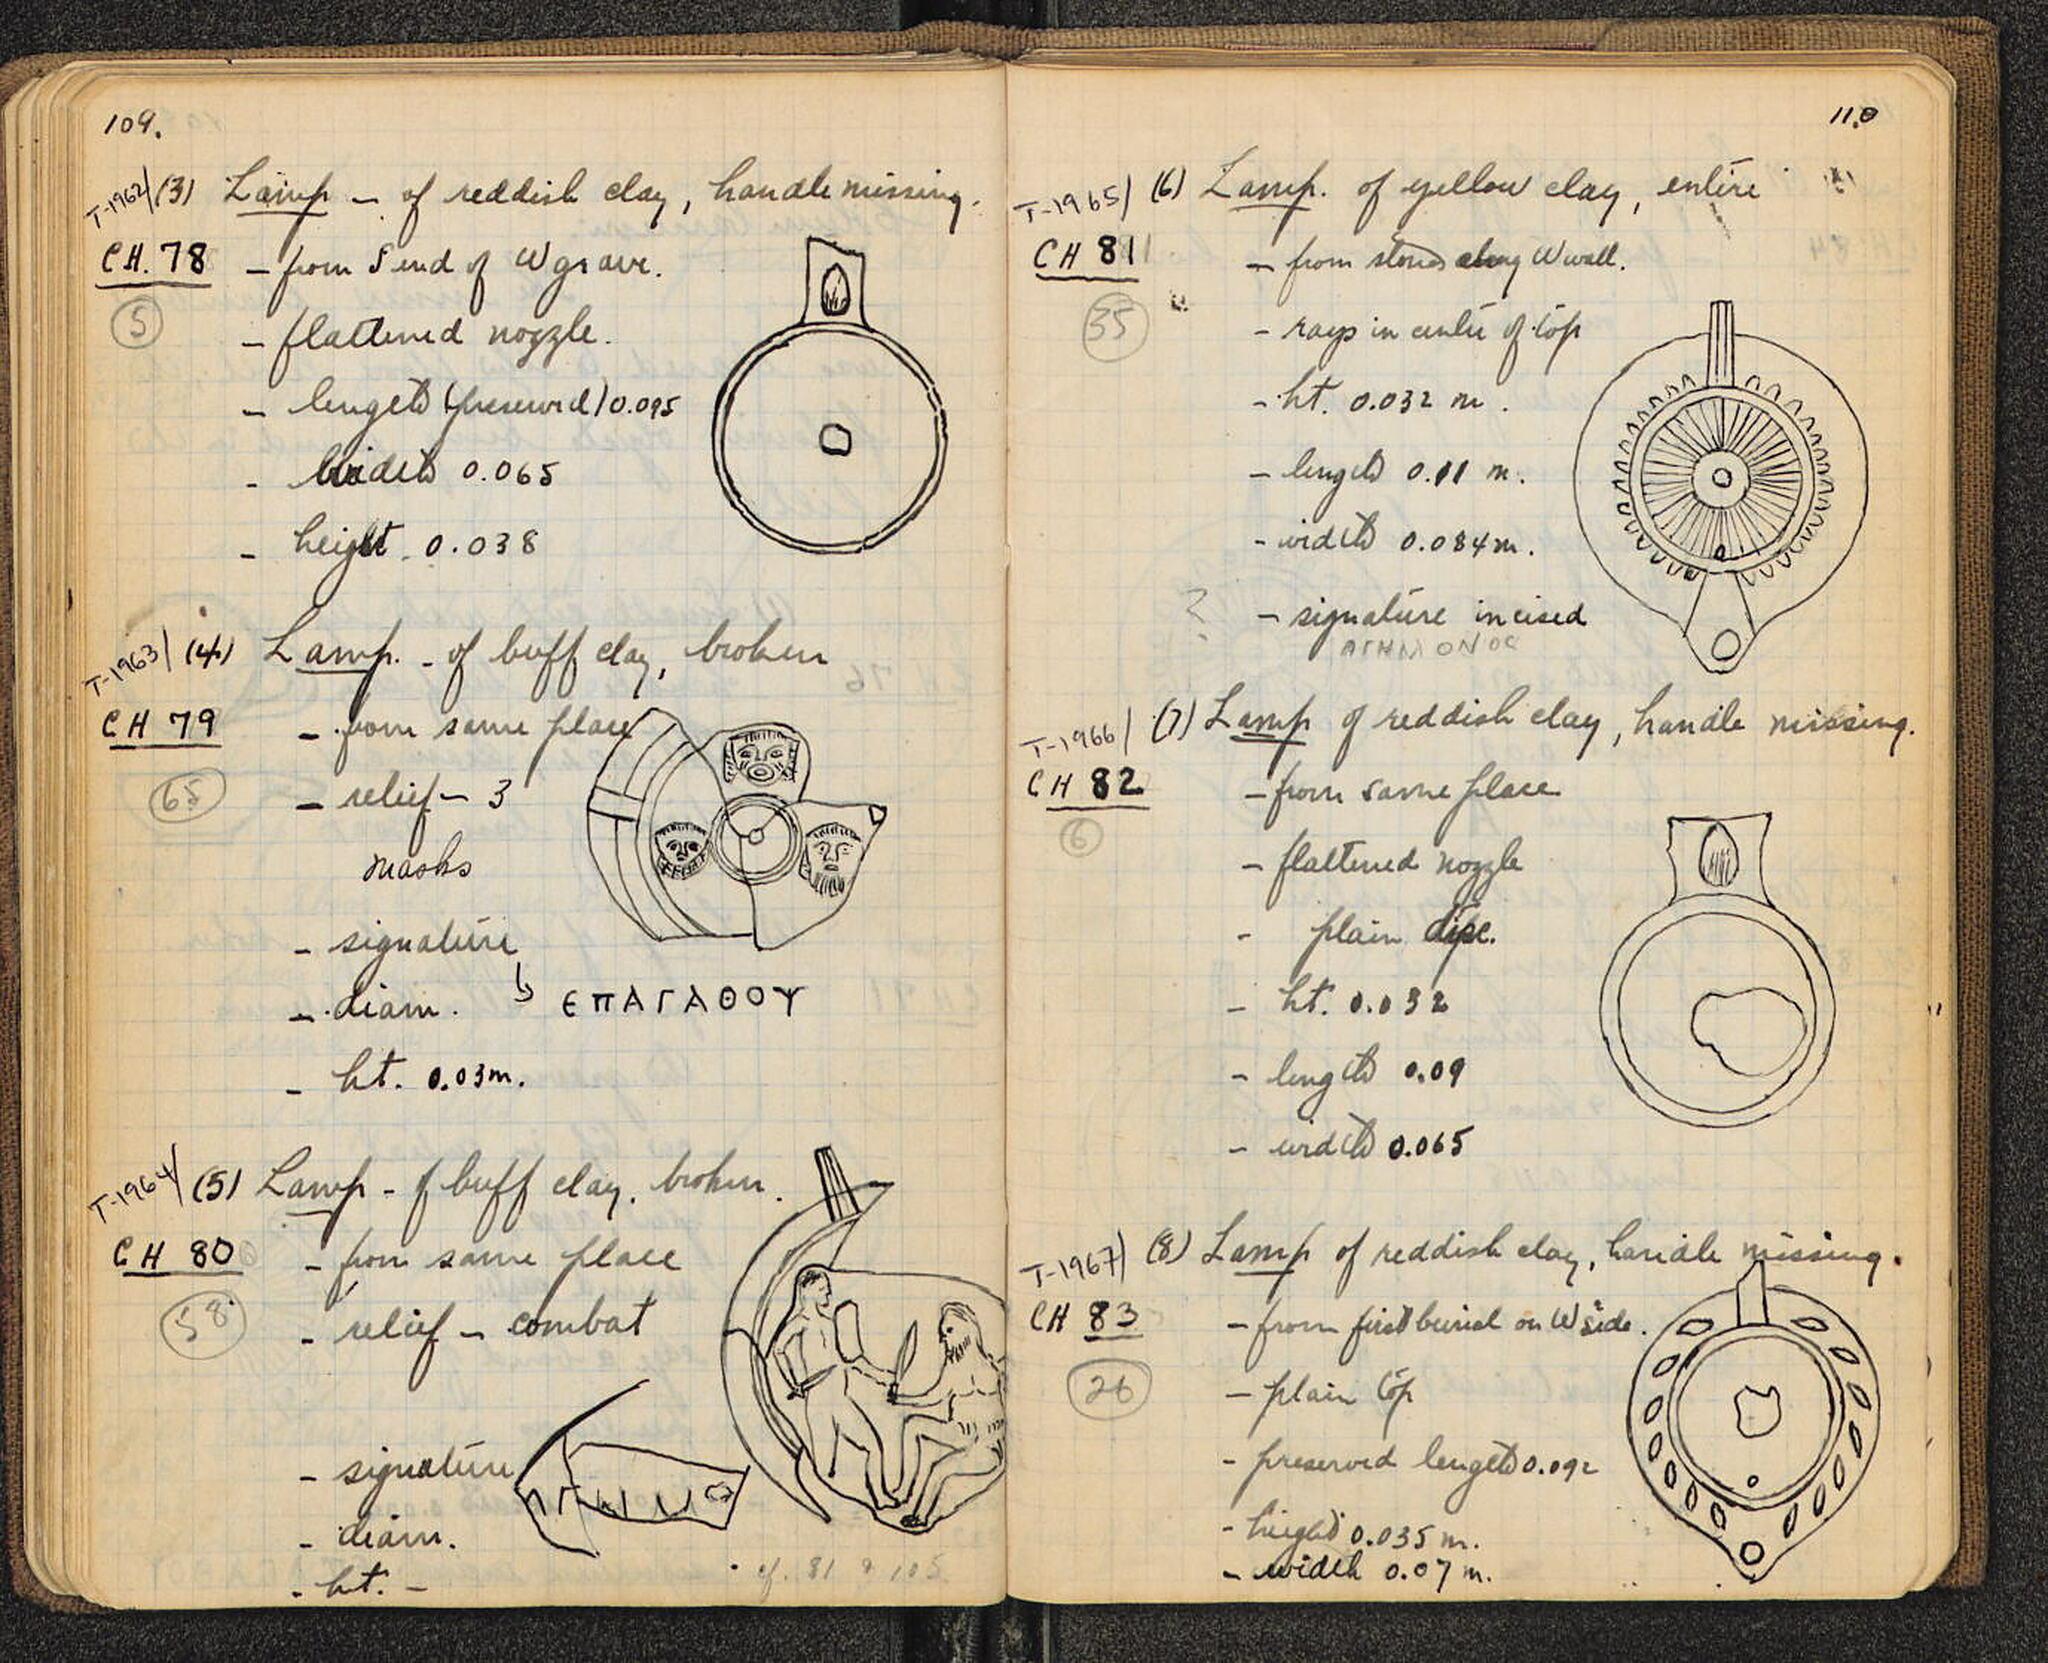 109.
T-1962/ (3) Lamp - of reddish clay, handle missing.
CH. 78 - from S end of W grave.
5 - flattened nozzle.
- length (preserved) 0.095
- width 0.065
- height 0.038
T-1963/ (4) Lamp. - of buff clay, broken
CH 79 - from same place
65 - relief - 3
masks
- signature
- diam. ΕΠΑΓΑΘΟΥ
- ht. 0.03m.
T-1964/ (5) Lamp - of buff clay. broken.
CH 80 - from same place
58 - relief - combat
- signature
- diam.
- ht. -
cf. 81 & 105
110
T-1965/ (6) Lamp. of yellow clay, entire
CH 81 - from stones along W wall.
35 - rays in centre of top
- ht. 0.032 m.
- length 0.11 m.
- width 0.084 m.
? - signature incised
ΑΓΗΜΟΝΟC
T-1966/ (7) Lamp of reddish clay, handle missing.
CH 82 - from same place
6 - flattened nozzle
- plain disc.
- ht. 0.032
- length 0.09
- width 0.065
T-1967/ (8) Lamp of reddish clay, handle missing.
CH 83 - from first burial on W side.
26 - plain top
- preserved length 0.092
- height 0.035 m.
- width 0.07 m.